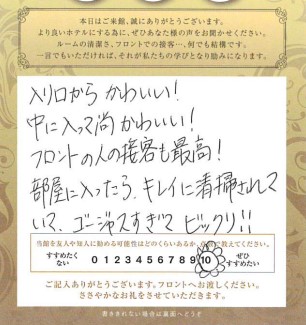 本日はご来館、誠にありがとうございます。
より良いホテルにする為に、ぜひあなた様の声をお聞かせください。
ルームの清潔さ、フロントでの接客…、何でも結構です。
一言でもいただければ、それが私たちの学びとなり励みになります。
入り口から かわいい!
中に入って尚 かわいい!
フロントの人の接客も最高!
部屋に入ったら、キレイに清掃されて
いて、ゴージャスすぎて ビックリ!!
当館を友人や知人に勧める可能性はどのくらいあるか、で教えてください。
すすめたくない 0 1 2 3 4 5 6 7 8 9 10 ぜひすすめたい
ご記入ありがとうございます。フロントへお渡しください。
ささやかなお礼をさせていただきます。
書ききれない場合は裏面へどうぞ